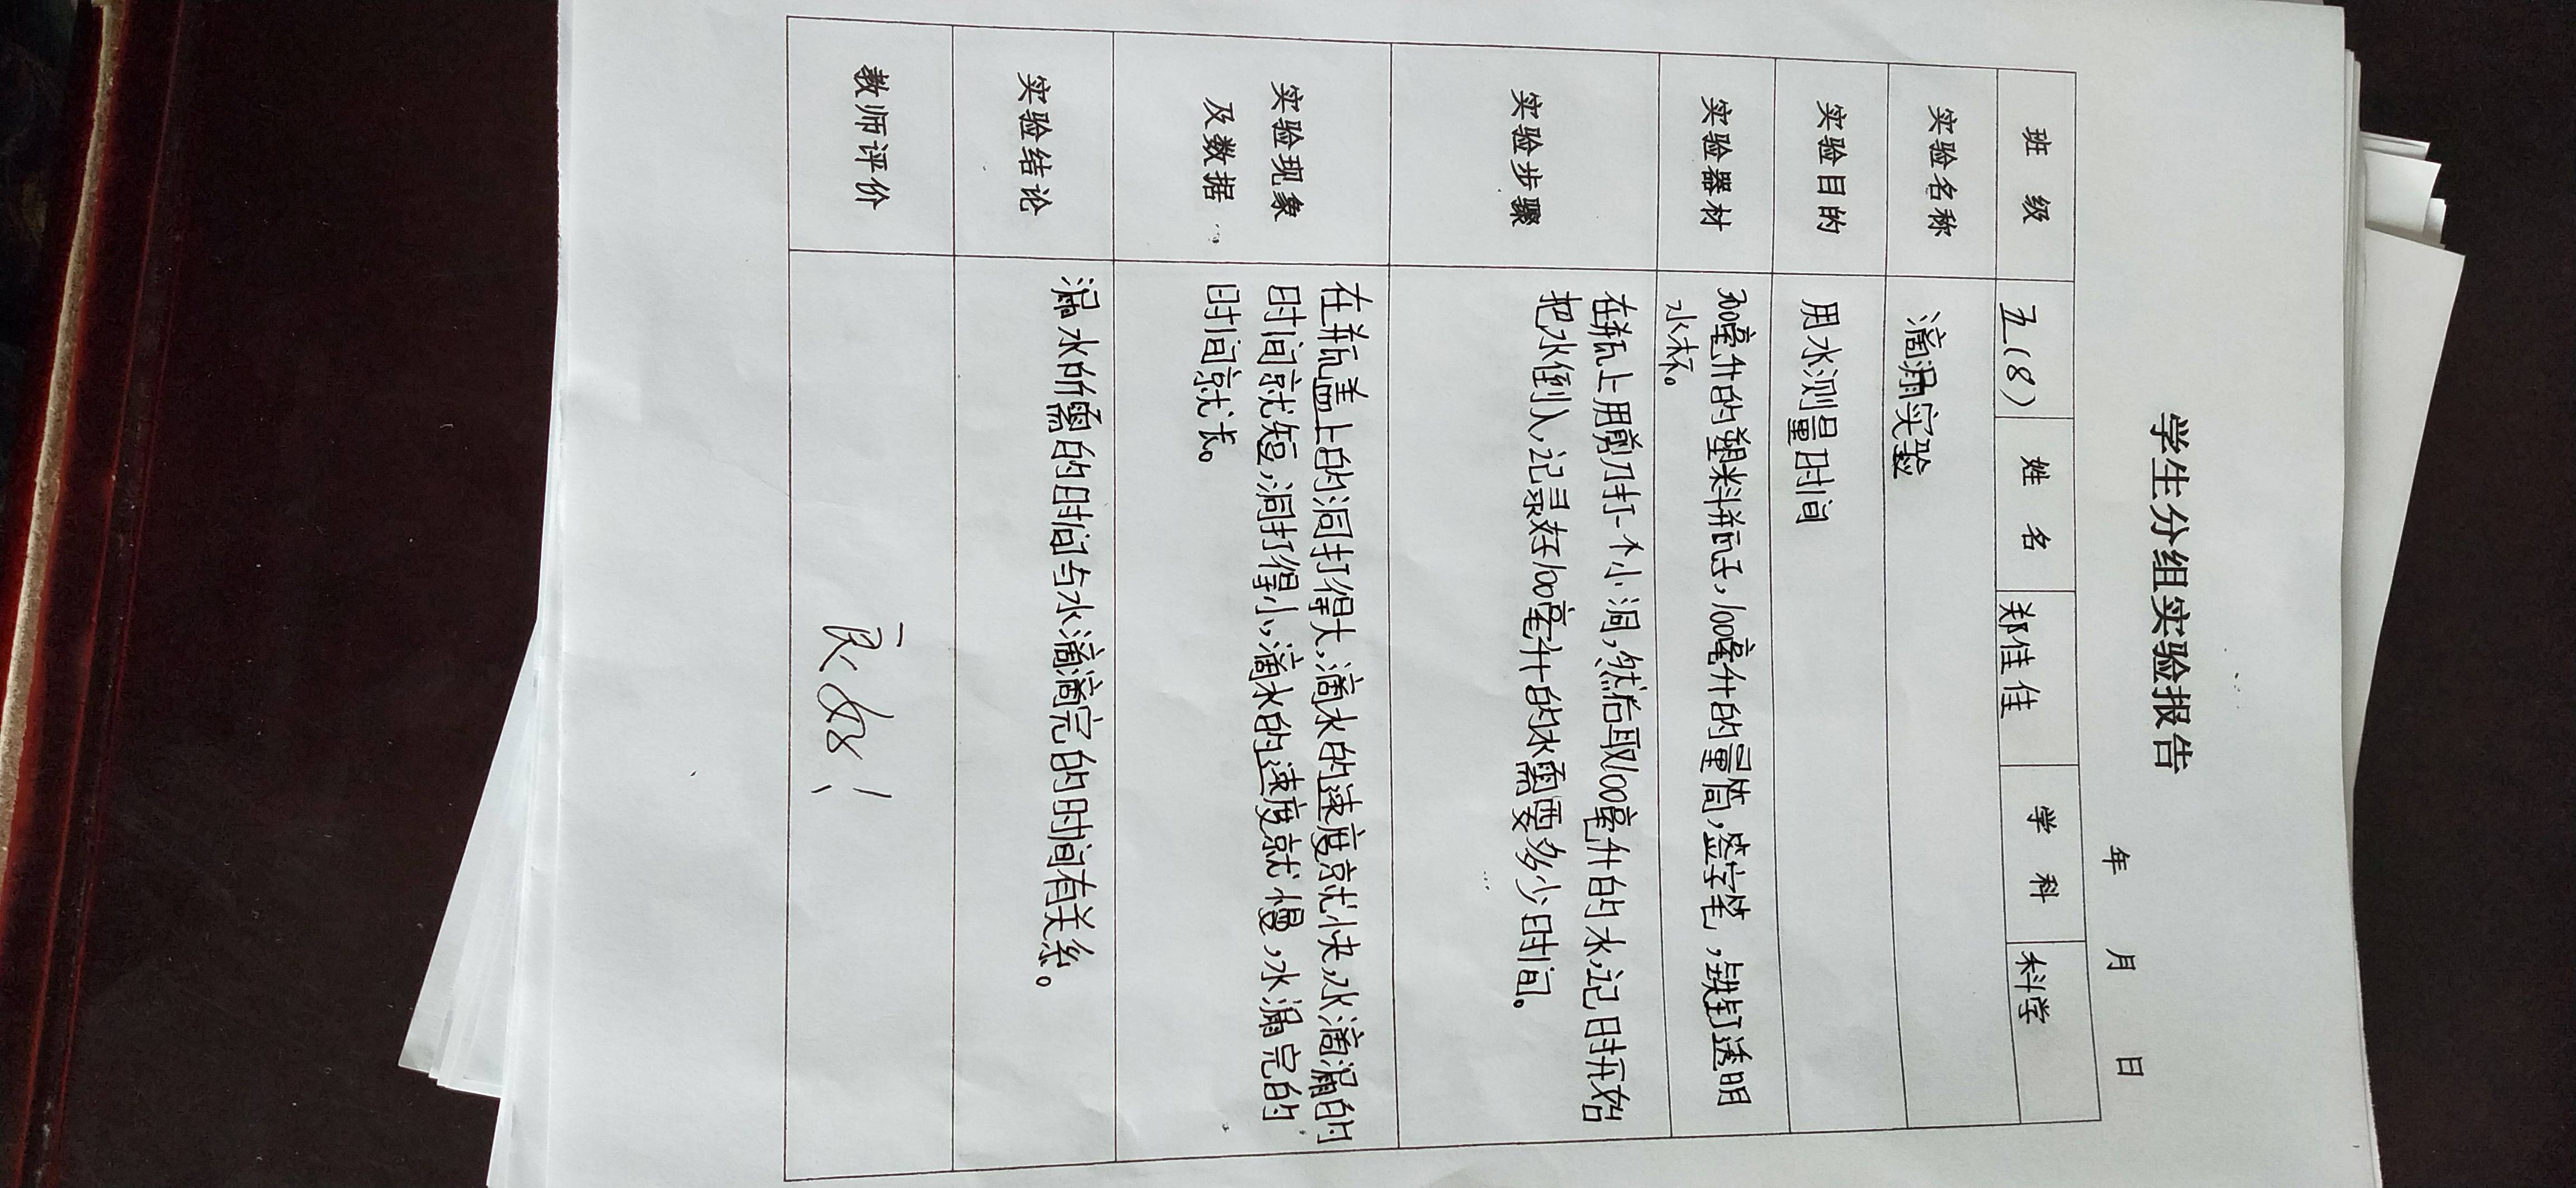 学生分组实验报告
年 月 日
班 级 五(8) 姓 名 郑佳佳 学 科 科学
实验名称 滴漏实验
实验目的 用水测量时间
实验器材 300毫升的塑料瓶子,100毫升的量筒,签字笔,铁钉透明
水杯。
实验步骤 在瓶上用剪刀打一个小洞,然后取100毫升的水,记时开始
把水倒入,记录好100毫升的水需要多少时间。
实验现象
及数据
在瓶盖上的洞打得大,滴水的速度就快,水滴漏的
时间就短,洞打得小,滴水的速度就慢,水漏完的
时间就长。
实验结论 漏水所需的时间与水滴滴完的时间有关系。
教师评价 良好!